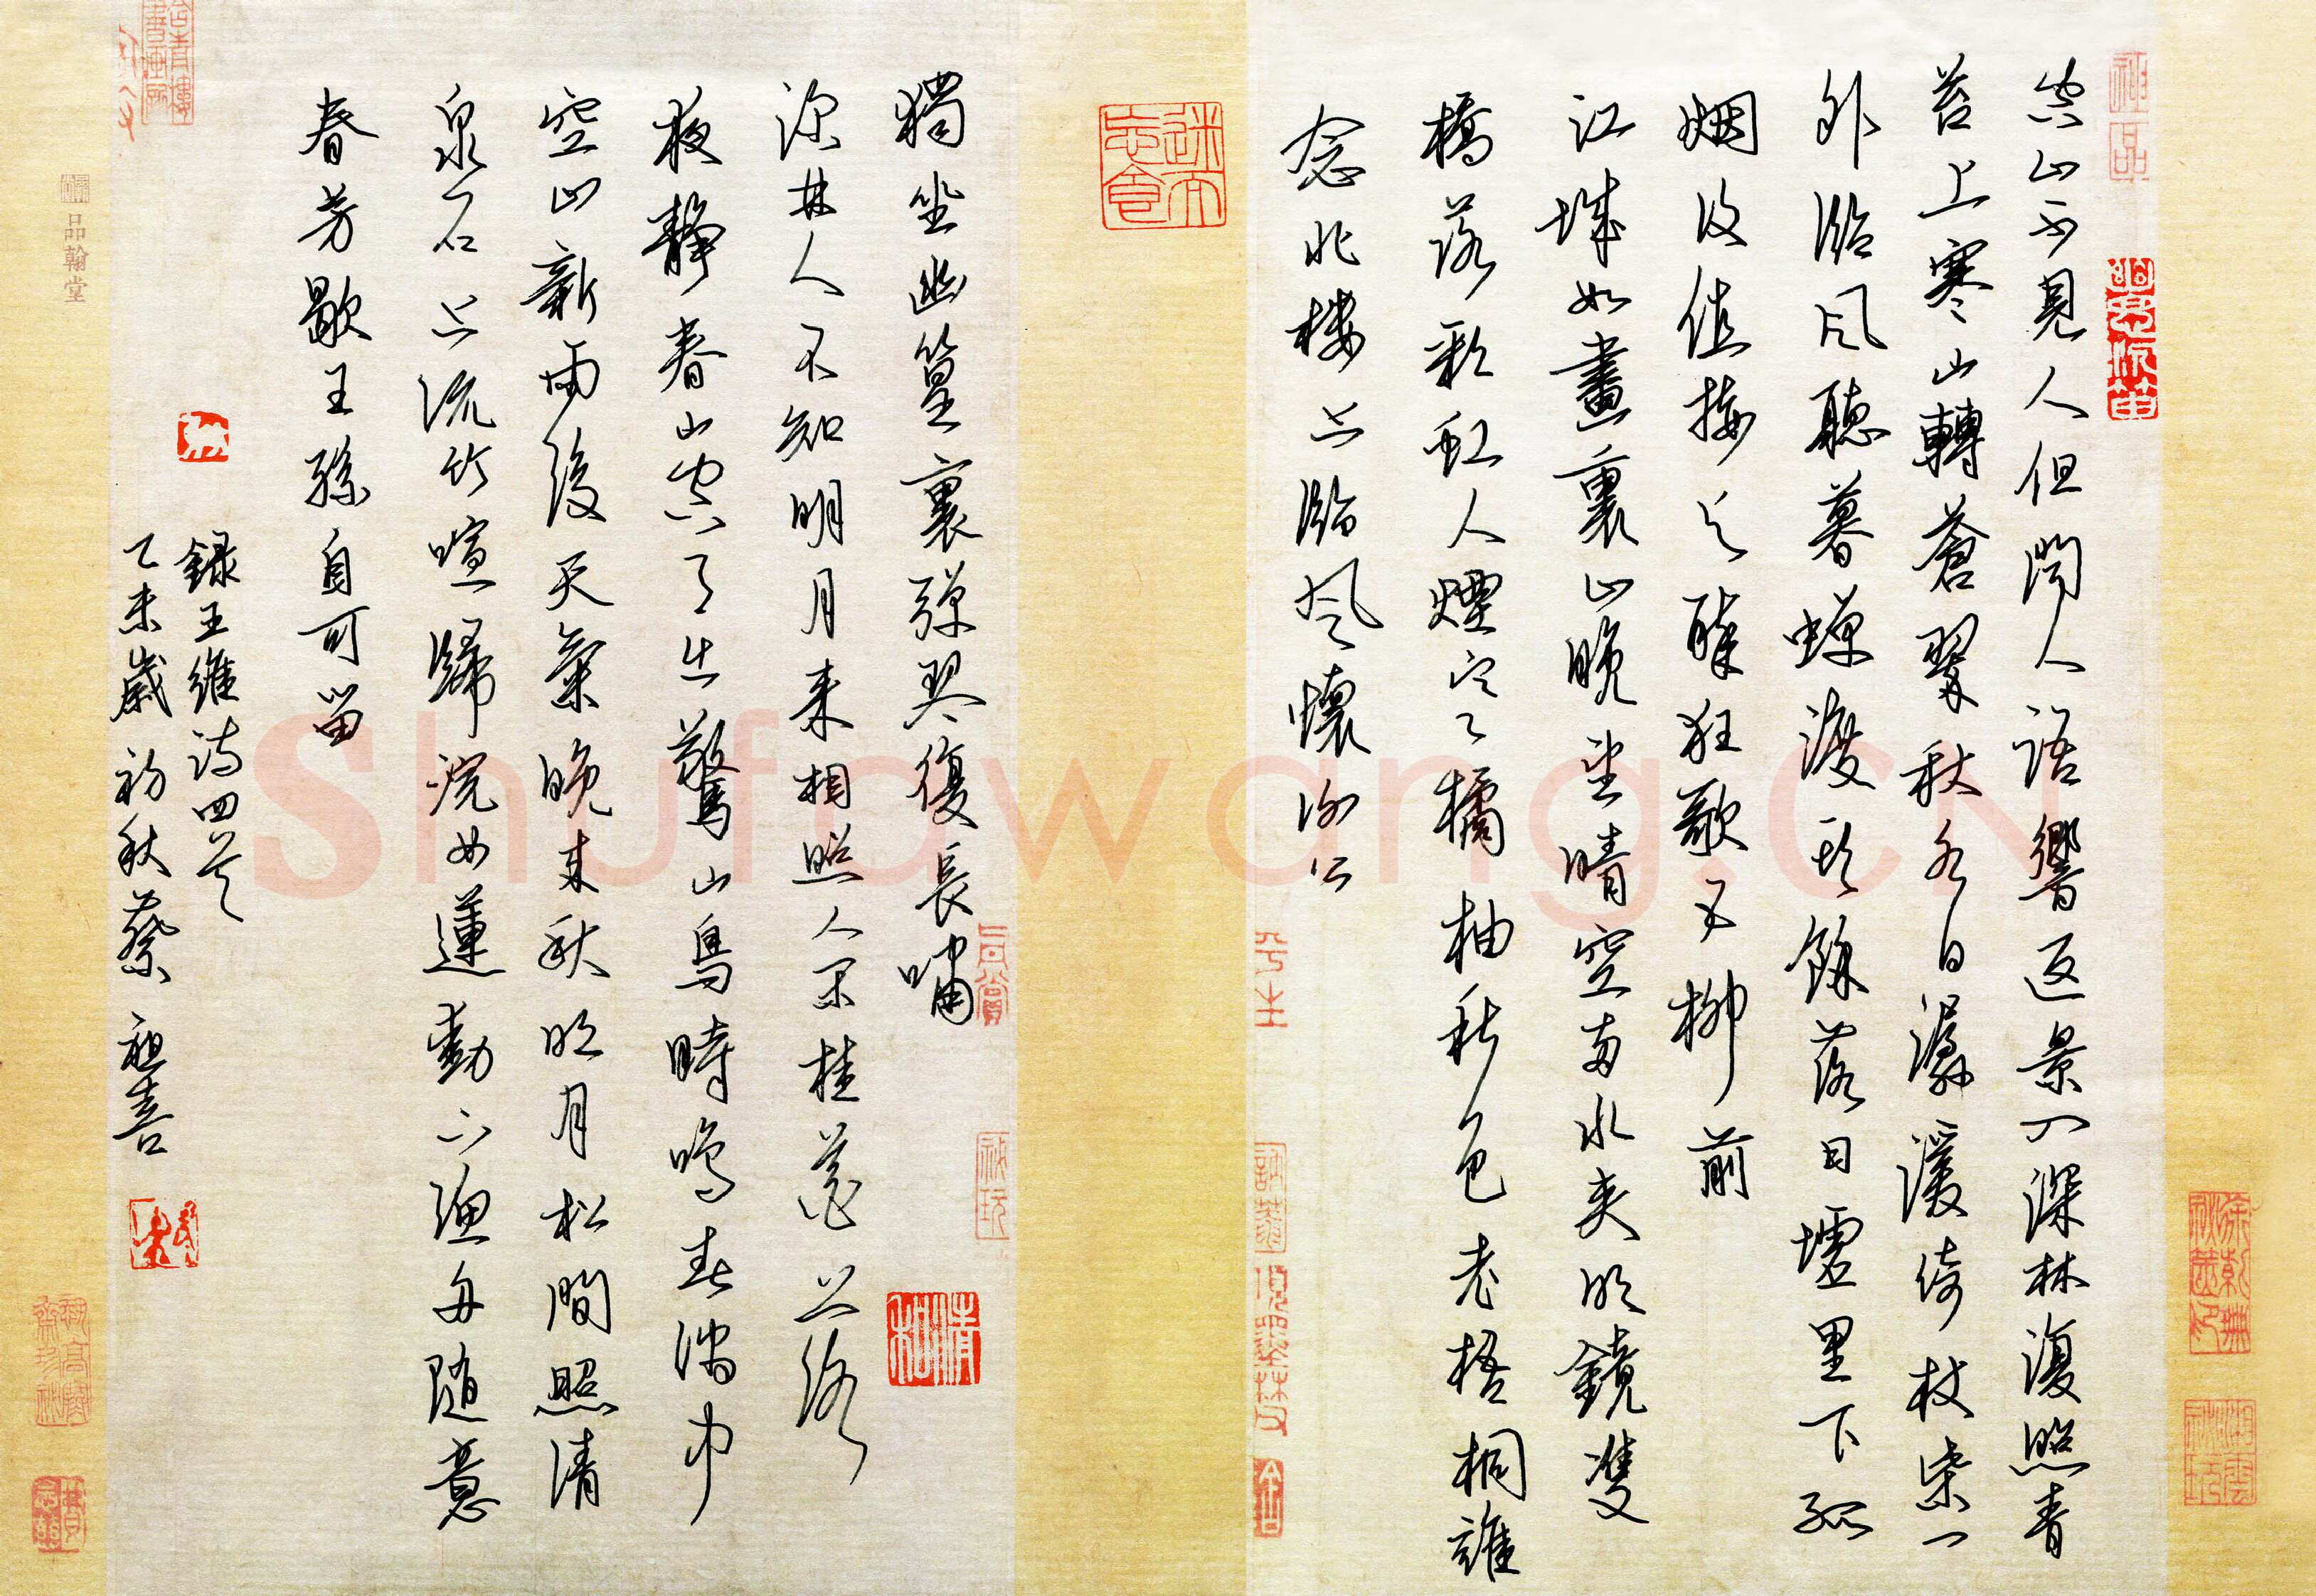 神品
空山不見人但聞人語響返景入深林復照青
苔上寒山轉蒼翠秋水日潺湲倚杖柴門
外臨風聽暮蟬渡頭餘落日墟里下孤
烟復值接輿醉狂歌五柳前
江城如畫裏山晚望晴空兩水夾明鏡雙
橋落彩虹人煙寒橘柚秋色老梧桐誰
念北樓上臨風懷謝公
獨坐幽篁裏彈琴復長嘯
清和
深林人不知明月來相照人閒桂花落
夜靜春山空月出驚山鳥時鳴春澗中
空山新雨後天氣晚來秋明月松間照清
泉石上流竹喧歸浣女蓮動下漁舟隨意
春芳歇王孫自可留
錄王維詩四首
乙未歲初秋蔡祖喜
品翰堂
Shufawang.CN